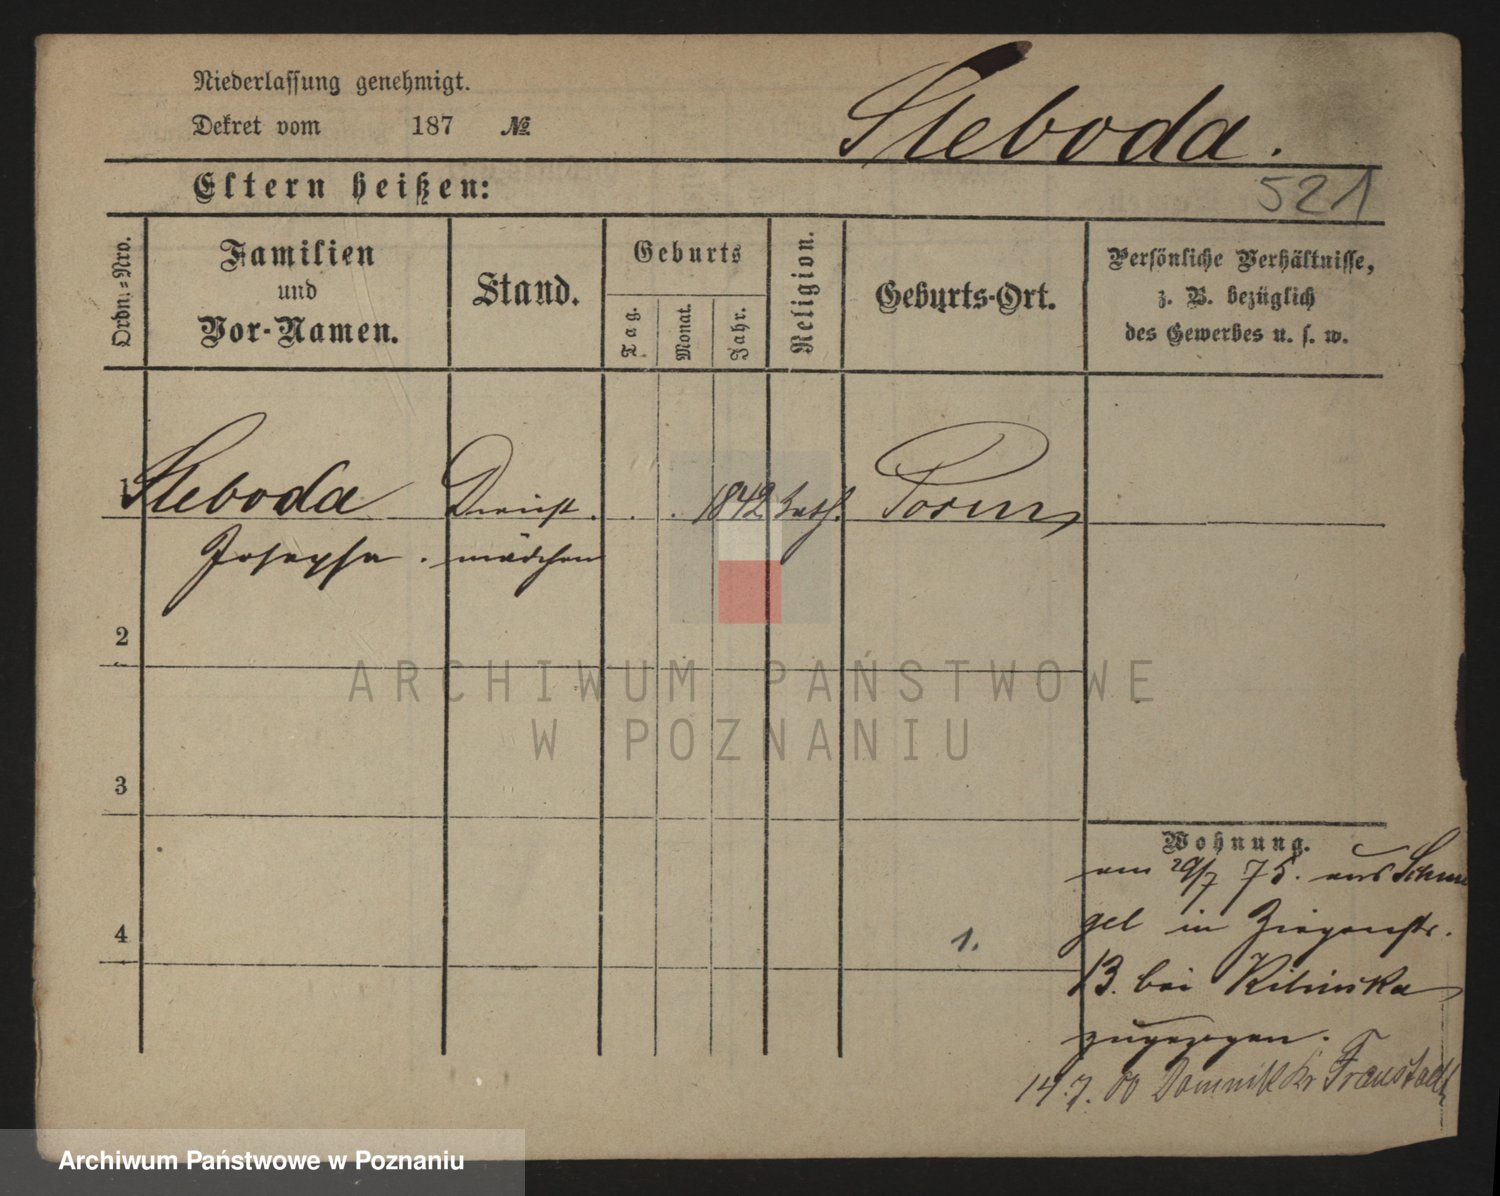 Niederlassung genehmigt.
Dekret vom 187 №
Sleboda.
Eltern heißen:
521
Ordn.-Nro.
Familien
und
Vor-Namen.
Stand.
Geburts
Tag.
Monat.
Jahr.
Religion.
Geburts-Ort.
Persönliche Verhältnisse,
z. B. bezüglich
des Gewerbes u. s. w.
1 Sleboda Dienst . . . 1842 kath.
Josepha . mädchen
2
3
4
1.
Wohnung.
am 29/7 75. aus Schmie
gel in Ziegenstr.
13. bei
zugezogen.
14.7. Kr Fraustadt
ARCHIWUM PAŃSTWOWE
W POZNANIU
Archiwum Państwowe w Poznaniu